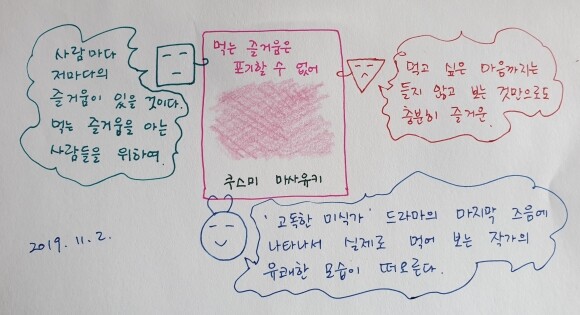 사람마다
저마다의
즐거움이 있을 것이다.
먹는 즐거움을 아는
사람들을 위하여.
먹는 즐거움은
포기할 수 없어
쿠스미 마사유키
먹고 싶은 마음까지는
들지 않고 보는 것만으로도
충분히 즐거운.
'고독한 미식가' 드라마의 마지막 즈음에
나타나서 실제로 먹어 보는 작가의
유쾌한 모습이 떠오른다.
2019. 11. 2.